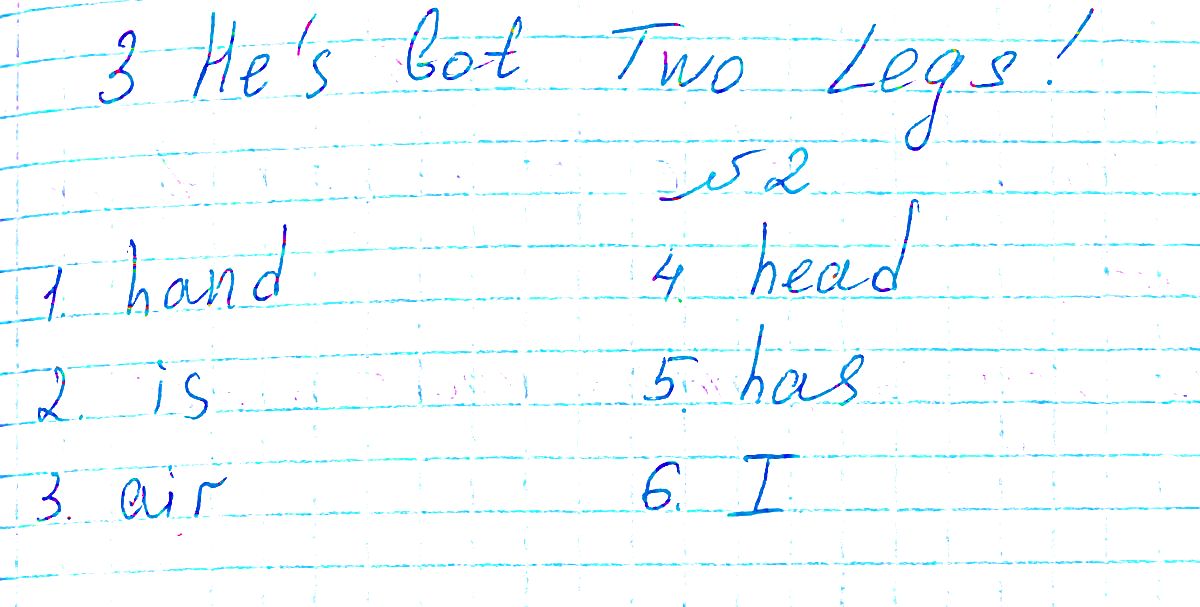 3 He's Got Two Legs!
№2
1. hand
2. is
3. air
4. head
5. has
6. I